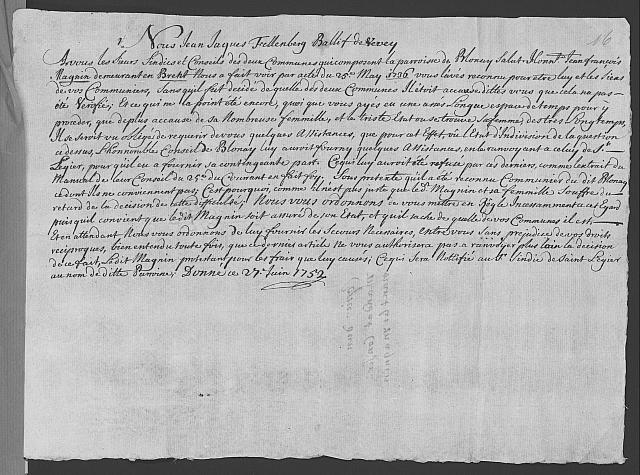 16
Nous Jean Jaques Fellenberg Ballif de Vevey
A vous les Sieurs Sindics et Conseils des deux Communes qui composent la paroisse de Blonay Salut. Honnt. Jean françois
Magnin demeurant en Brett Nous a fait voir par acte du 25e. May 1736 vous l'avés reconnu pour être luy et les siens
de vos Communiers, Sans qu'il fut décidé de quelle des deux Communes il étoit à cause dittes vous que cela na pas
eté Verifié, Et ce qui ne la point été encore, quoi que vous ayes eu une assés longue espace de temps pour y
proceder, que de plus a cause de sa Nombreuse femmille, et la triste Etat ou se trouve sa femme, des tres longtemps,
Il se seroit vu obligé de requerir de vous quelques Assistances, que pour cet Effet, vû l'Etat d'Indivision de la question
ci dessus, l'honnorable Conseil de Blonay luy auroit fourny quelques Assistances, en le renvoyant a celuy de St.
Legier, pour qu'il eu a fournir sa contingente part. Ce qui luy auroit été refusé par ces derniers, comme l'extrait du
Manual de leur Conseil du 25me du Courant en fait foy. Sous pretexte qu'il a été reconnu Communier du dit Blonay
ce dont ils ne conviennent pas; C'est pourquoy, comme il n'est plus juste que le dt. Magnin et sa femmille Souffre du
retard de la decision de cette difficulté; Nous vous ordonnons de vous mettre en Regle Incessamment a cet Egard
puisqu'il convient que le dit Magnin soit assuré de son Etat, et qu'il sache des quelle de vos Communes il est
Et en attendant Nous vous ordonnons de luy fournir les Secours Necessaires, entre vous Sans prejudice de vos droits
reciproques, bien entendu toute fois, que ce dernier article ne vous authorisera pas a renvoyer plus loin la decision
de ce fait, Ledit Magnin protestant pour les frais que luy causés; Ce qui sera Notifié au Sr. Sindic de Saint Legier
au nom de ditte Paroisse, Donné ce 27e. Juin 1752